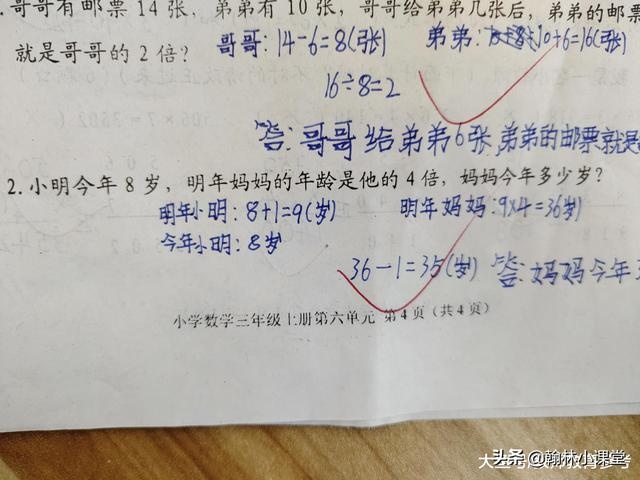 .哥哥有邮票 14 张，弟弟有 10 张，哥哥给弟弟几张后，弟弟的邮票
就是哥哥的 2 倍？ 哥哥：14-6=8(张) 弟弟：10+6=16(张)
16÷8=2
答：哥哥给弟弟6张，弟弟的邮票就是
2.小明今年 8 岁，明年妈妈的年龄是他的 4 倍，妈妈今年多少岁？
明年小明：8+1=9(岁) 明年妈妈：9×4=36(岁)
今年小明：8岁
36-1=35(岁) 答：妈妈今年3
小学数学三年级上册第六单元 第 4 页（共 4 页）
头条 @翰林小课堂